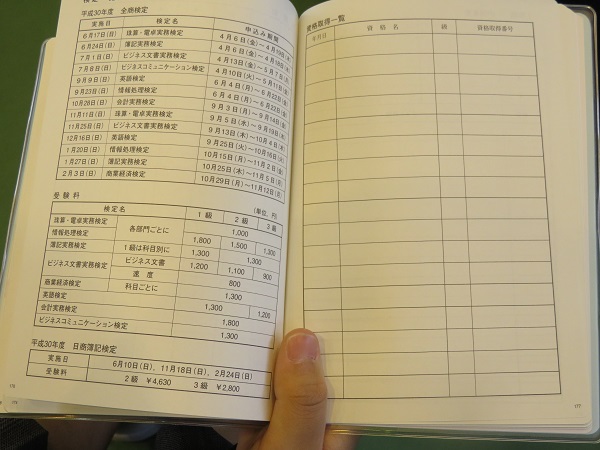 平成30年度 全商検定
実施日 検定名 申込み期間
6月17日(日) 珠算・電卓実務検定 4月6日(金)~4月19日(木)
6月24日(日) 簿記実務検定 4月6日(金)~4月18日(水)
7月1日(日) ビジネス文書実務検定 4月13日(金)~5月7日(月)
7月8日(日) ビジネスコミュニケーション検定 4月10日(火)~5月11日(金)
9月9日(日) 英語検定 6月4日(月)~6月22日(金)
9月23日(日) 情報処理検定 6月4日(月)~6月22日(金)
10月28日(日) 会計実務検定 9月3日(月)~9月14日(金)
11月11日(日) 珠算・電卓実務検定 9月5日(水)~9月19日(水)
11月25日(日) ビジネス文書実務検定 9月13日(木)~10月4日(木)
12月16日(日) 英語検定 9月25日(火)~10月16日(火)
1月20日(日) 情報処理検定 10月15日(月)~11月2日(金)
1月27日(日) 簿記実務検定 10月25日(木)~11月5日(月)
2月3日(日) 商業経済検定 10月29日(月)~11月12日(月)
受験料
(単位,円)
検定名 1級 2級 3級
珠算・電卓実務検定 各部門ごとに 1,000
情報処理検定 1,800 1,500 1,300
簿記実務検定 1級は科目別に 1,300 1,300
ビジネス文書実務検定 ビジネス文書 1,200 1,100 900
速度 800
商業経済検定 科目ごとに 1,300
英語検定 1,300 1,200
会計実務検定 1,800
ビジネスコミュニケーション検定 1,300
平成30年度 日商簿記検定
実施日 6月10日(日)、11月18日(日)、2月24日(日)
受験料 2級 ¥4,630 3級 ¥2,800
176
資格取得一覧
年月日 資格名 級 資格取得番号
177